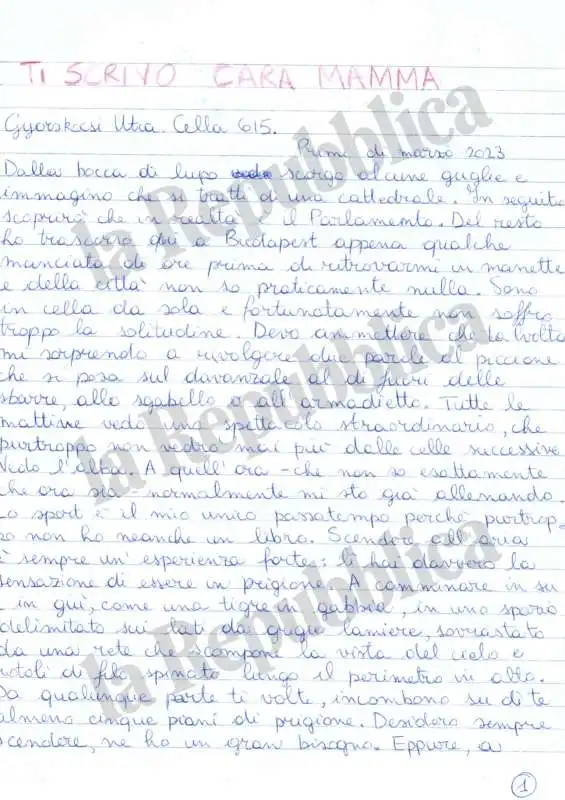 TI SCRIVO CARA MAMMA
Gyorskocsi Utca. Cella 615.
Primi di marzo 2023
Dalla bocca di lupo scorgo alcune guglie e
immagino che si tratti di una cattedrale. In seguito
scoprirò che in realtà è il Parlamento. Del resto
ho trascorso qui a Budapest appena qualche
manciata di ore prima di ritrovarmi in manette
e della città non so praticamente nulla. Sono
in cella da sola e fortunatamente non soffro
troppo la solitudine. Devo ammettere che talvolta
mi sorprendo a rivolgere due parole al piccione
che si posa sul davanzale al di fuori delle
sbarre, allo sgabello o all'armadietto. Tutte le
mattine vedo uno spettacolo straordinario, che
purtroppo non vedrò mai più dalle celle successive
Vedo l'alba. A quell'ora - che non so esattamente
che ora sia - normalmente mi sto già allenando.
Lo sport è il mio unico passatempo perché purtrop-
po non ho neanche un libro. Scendere all'aria
è sempre un'esperienza forte: lì hai davvero la
sensazione di essere in prigione. A camminare in su
e in giù, come una tigre in gabbia, in uno spazio
delimitato sui lati da grigie lamiere, sovrastato
da una rete che scompone la vista del cielo e
rotoli di filo spinato lungo il perimetro in alto.
Da qualunque parte ti volte, incombono su di te
almeno cinque piani di prigione. Desidero sempre
scendere, ne ho un gran bisogno. Eppure, a
1
la Repubblica
la Repubblica
la Repubblica